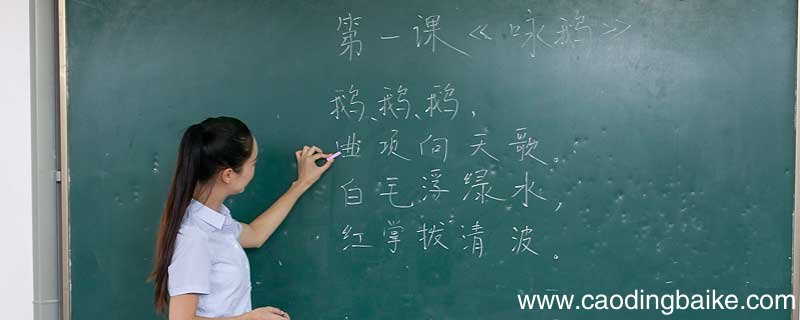 第一课《咏鹅》
鹅、鹅、鹅，
曲项向天歌。
白毛浮绿水，
红掌拨清波。
www.caodingbaike.com